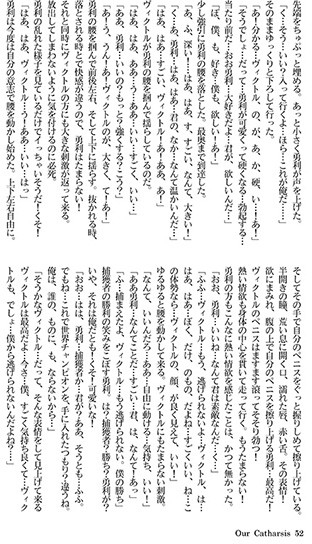 先端をちゅぷっと埋める。あっと小さく勇利が声を上げた。
「くっ…そういい？入って行くよ…ほら…これが僕だ……」
そのままゆっくりと下ろして行った。
「あ！分かる…ヴィクトル、の、が、あ、か、硬、い…！あ！」
「そうでしょ…だって…勇利が可愛くって硬くなる…勃起する…
当たり前だ…おお勇利…大好きだよ…君が、欲しいんだ…」
「ぼ、僕、も、好き…僕も、欲しい！あ！」
少し強引に勇利の腰を落とした。最奥まで到達した。
「あ、ふ、深い…！はあ、はあ、す、すごい、なんて、大きい！
「くっ…あ、勇利…はあ、はあ…君の、なか…なんて温かいんだ…」
「はあ、はあ…すごい、ヴィクトル！あ！ああ、あ！」
ヴィクトルが勇利の腰を掴んで揺らしているのだ。
「はあ、はあ、ああ、うう…あ…いい…すごく、いい…」
「あ、勇利…いいの？もっと強くする？こう？」
「あ！う、うん…あ！ヴィクトルのが、大きく、て！あ！」
勇利の腰を掴んで前後左右、そして上下に揺らす。抜かれる時、
落とされる時とで快感が違うので、勇利はたまらない！
それと同時にヴィクトルの方にも大きな刺激が返って来る。
放出してしまわないように気を付けるのに必死。
勇利の乱れた様子を見ているだけでイッちゃいそうだ！くそ！
「はあ、はあ、ヴィクトル…う！ああ…いい……は」
勇利は今度は自分の意志で腰を動かし始めた。上下左右自由に。
そしてその手で自分のペニスをぐっと握りしめて擦り上げている。
半開きの瞳、荒い息に開く口、濡れた唇、赤い舌、その表情！
欲にまみれ、腹の上で自分のペニスを擦り上げる勇利…最高だ！
ヴィクトルのペニスはますます滾ってそそり勃つ！
熱い情欲も身体の中心を貫いて走って行く。もうたまらない！
勇利の方もこんなに熱い情欲を感じたことは、かつて無かった。
「おお、勇利…いいね…なんて君は素敵なんだ…く…」
「ふふ…ヴィクトル…もう、逃げられないよ…ヴィクトル、は…
はあ、はあ…ぼく、だけ、のもの、だよね…すごくいい、ね…こ
の体勢なら…ヴィクトルの、顔、が良く見えて、いい！」
ゆるゆると腰を動かして来る。ヴィクトルにもたまらない刺激。
「なんて、いいんだろ…ああ…自由に動ける…気持ち、いい！」
「ああ勇利…なんてことだ…すごい…君、は、なんて…あ！」
「ふ…捕まえたよ、ヴィクトル…もう逃げられない、僕の勝ち」
捕獲者の勝利の笑みをこぼす勇利。は？捕獲者？勝ち？勇利が？
いや、それは俺だとも！くそ！可愛いな！
「おお…は、勇利…捕獲者か…君が？ああ、そうとも…ふふ。
でもね…これで世界チャンピオンを、手に入れたつもり？違うね。
俺は、誰の、ものに、も、ならないから…」
「そうかなヴィクトル…だって、そんな表情をして見上げて来る
ヴィクトルは最高だよ…今さ…僕、すごく気持ち良くて…ヴィク
トルも、でしょ…僕から逃げられないんだよね？…」
Our Catharsis　52